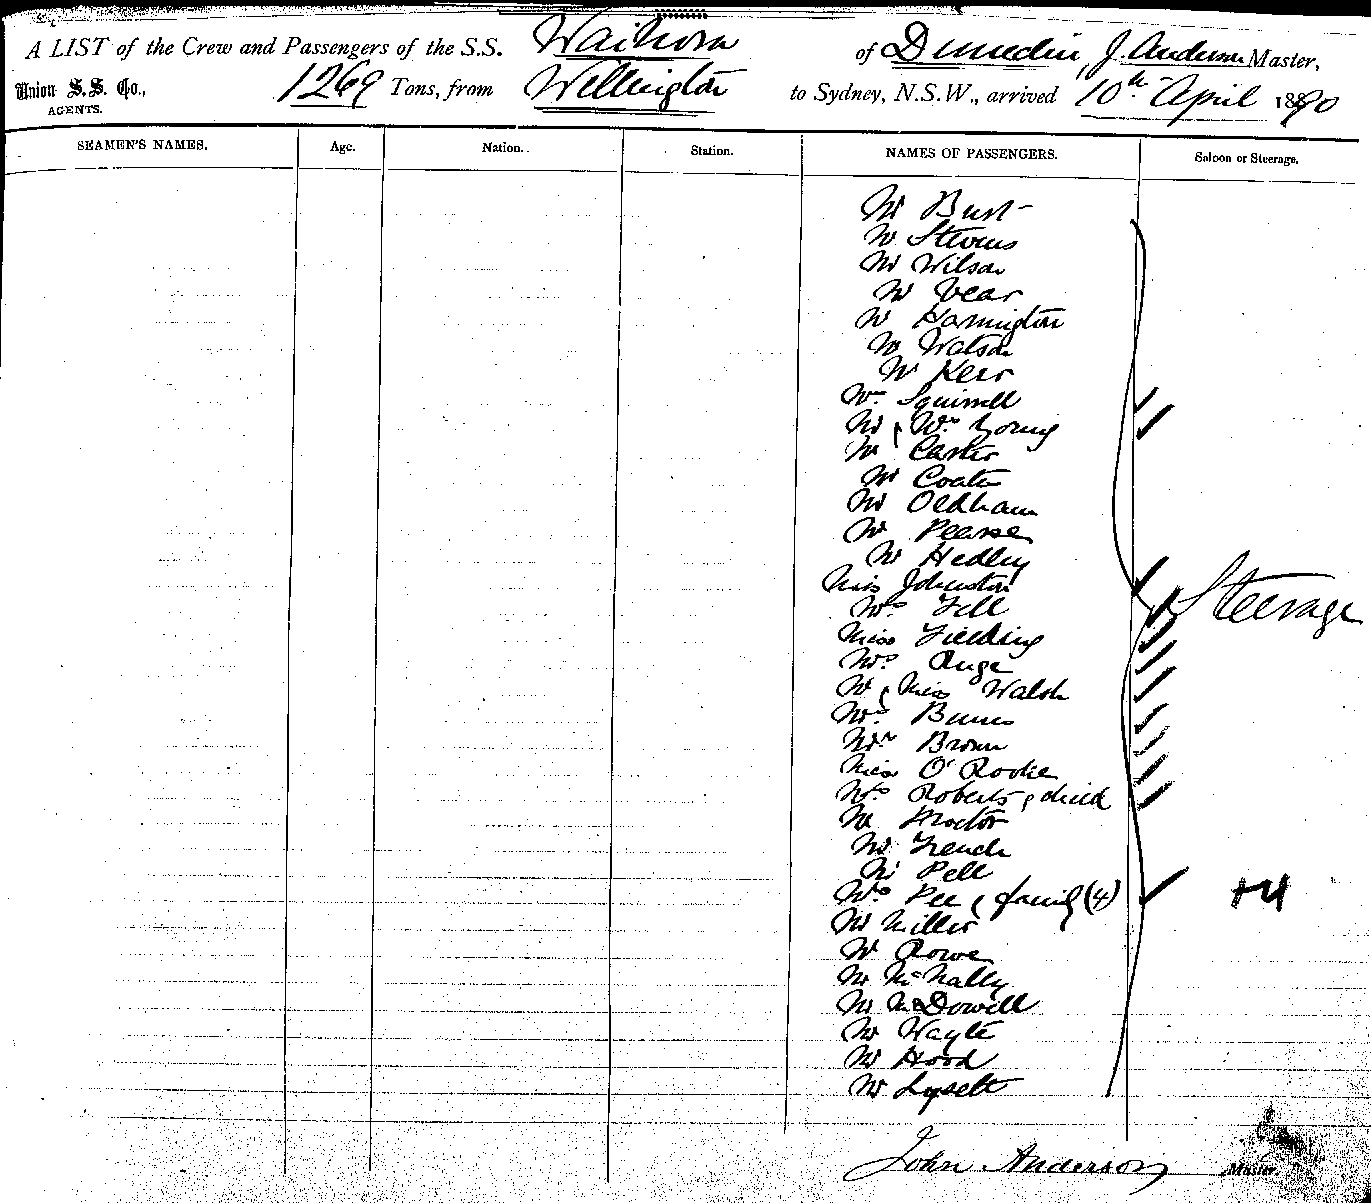 A LIST of the Crew and Passengers of the S.S. Waihora of Dunedin, J. Anderson Master,
Union S.S. Co., AGENTS. 1269 Tons, from Wellington to Sydney, N.S.W., arrived 10th April 1890
SEAMEN'S NAMES. Age. Nation. Station. NAMES OF PASSENGERS. Saloon or Steerage.
Mr Burt
Mr Stevens
Mr Wilson
Mr Vear
Mr Harrington
Mr Watson
Mr Kerr
Mrs Squirrell
Mr & Mrs Young
Mr Carter
Mr Coate
Mr Oldham
Mr Pearse
Mr Hedley
Miss Johnston
Mrs Fell
Steerage
Miss Fielding
Mrs Ruge
Mr & Miss Walsh
Mrs Burns
Mrs Brown
Miss O'Rorke
Mrs Roberts & child
Mr Proctor
Mr French
Mr Pell
Mrs Pee & family (4) +4
Mr Miller
Mr Rowe
Mr McNally
Mr McDowell
Mr Wayte
Mr Hood
Mr Lysett
John Anderson Master.